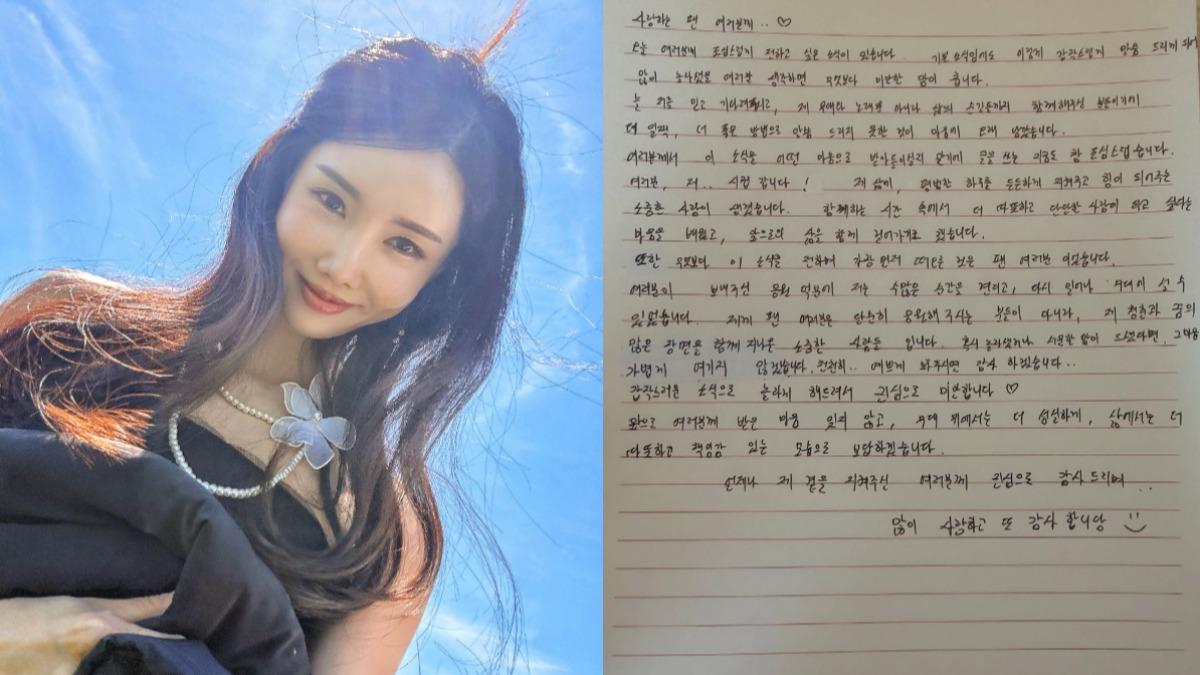 사랑하는 팬 여러분께.. ♡
오늘 여러분께 조심스럽게 전하고 싶은 소식이 있습니다. 기쁜 소식임에도 이렇게 갑작스럽게 말씀 드리게 되어
많이 놀라셨을 여러분 생각하면 무엇보다 미안한 맘이 큽니다.
늘 저를 믿고 기다려주시고, 제 무대와 노래뿐 아니라 삶의 순간들까지 함께해주신 분들이기에
더 일찍, 더 좋은 방법으로 말씀 드리지 못한 것이 마음에 오래 남았습니다.
여러분께서 이 소식을 어떤 마음으로 받아들이실지 알기에 글을 쓰는 지금도 참 조심스럽습니다.
여러분, 저.. 시집 갑니다! 제 삶에, 평범한 하루를 든든하게 지켜주고 힘이 되어주는
소중한 사람이 생겼습니다. 함께하는 시간 속에서 더 따뜻하고 단단한 사람이 되고 싶다는
마음을 배웠고, 앞으로의 삶을 함께 걸어가기로 했습니다.
또한 무엇보다 이 소식을 전하며 가장 먼저 떠오른 것은 팬 여러분 이었습니다.
여러분이 보내주신 응원 덕분에 저는 수많은 순간을 견디고, 다시 일어나 무대에 설 수
있었습니다. 제게 팬 여러분은 단순히 응원해 주시는 분들이 아니라, 제 청춘과 꿈의
많은 장면을 함께 지나온 소중한 사람들 입니다. 혹시 놀라셨거나 서운한 맘이 드셨다면, 그 마음
가볍게 여기지 않겠습니다. 천천히.. 예쁘게 봐주시면 감사 하겠습니다..
갑작스러운 소식으로 놀라게 해드려서 진심으로 미안합니다 ♡
앞으로 여러분께 받은 마음 잊지 않고, 무대 위에서는 더 성실하게, 삶에서는 더
따뜻하고 책임감 있는 모습으로 보답하겠습니다.
언제나 제 곁을 지켜주신 여러분께 진심으로 감사 드리며..
많이 사랑하고 또 감사 합니당 :)